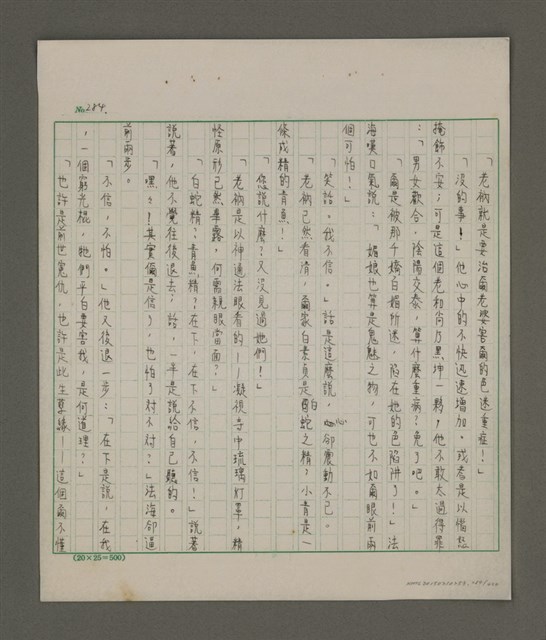 No. 284.
「老衲就是要治爾老嬰害爾的色迷重症！」
「沒的事！」他心中的不快迅速增加。或者是以惱怒
掩飾不安；可是這個老和尚乃黑坤一夥，他不敢太過得罪
：「男女歡合，陰陽交泰，算什麼重病？免了吧。」
「爾是被那千嬌白媚所迷，陷在她的色陷阱了！」法
海嘆口氣說：「媚娘也算是鬼魅之物，可也不如爾眼前兩
個可怕！」
「笑話。我不信。」話是這麼說，心卻震動不已。
「老衲已然看清，爾家白素貞是白蛇之精？小青是一
條成精的青魚！」
「您說什麼？又沒見過她們！」
「老衲是以神通法眼看的——凝視寺中琉璃灯罩，精
怪原形已然畢露，何需親眼當面？」
「白蛇精？青魚精？在下，在下不信，不信！」說著
說著，他不覺往後退去；話，一半是說給自己聽的。
「嘿々！其實爾是信了，也怕了对不对？」法海卻逼
前兩步。
「不信，不怕。」他又後退一步：「在下是說，在我
，一個窮光棍，她們平白要害我，是何道理？」
「也許是前世冤仇，也許是此生孽緣，這個爾不懂
(20×25=500)